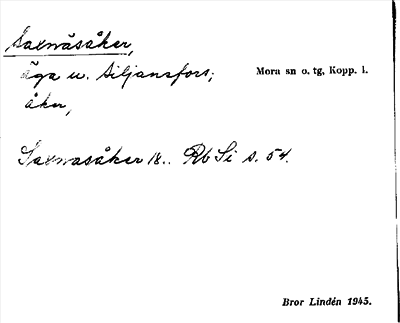 Saxnäsåker,
äga u. Siljansfors; Mora sn o. tg, Kopp. l.
åker,
Saxnasåker 18.. Rb Si s. 54.
Bror Lindén 1945.